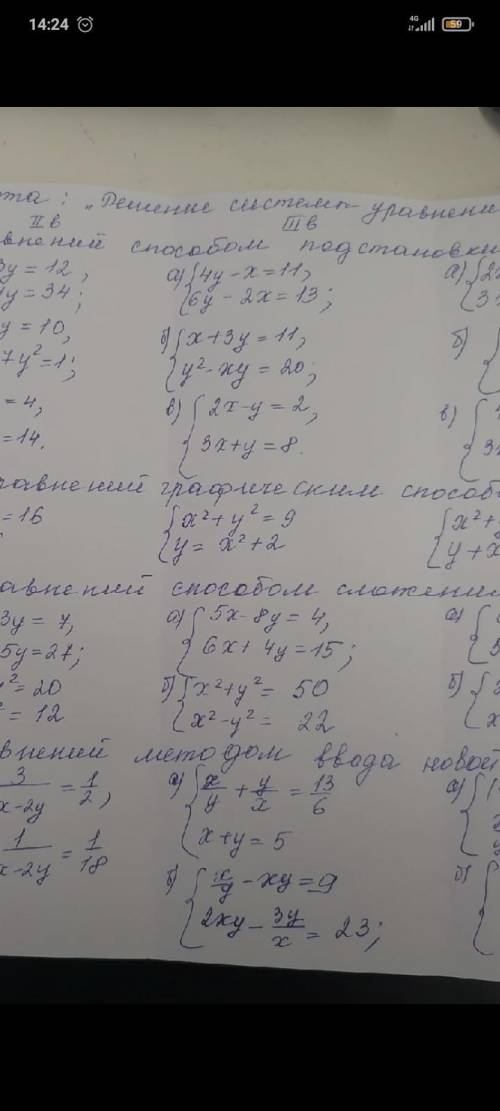 14:24
4G
59
ота: „Решение систем уравнени
II в III в
внений способом подстановки
3y = 12,
а) {4y - x = 11,
а) {2x
y = 34;
6y - 2x = 13;
3
y = 10,
б) {x + 3y = 11,
б)
7y² = 1;
y² - xy = 20;
= 4,
в) {2x - y = 2,
в)
= 14.
3x + y = 8.
3x
равнений графическим способо
= 16
{x² + y² = 9
{x² +
y = x² + 2
y + x
равнений способом сложени
3y = 7,
а) {5x - 8y = 4,
а)
5y = 27;
6x + 4y = 15;
5
y² = 20
б) {x² + y² = 50
б)
² = 12
x² - y² = 22
x
внений методом ввода новой
3/x-2y = 1/2,
а) {x/y + y/x = 13/6
а)
1/x-2y = 1/18
x + y = 5
y
б) {x/y - xy = 9
б)
2xy - 3y/x = 23;